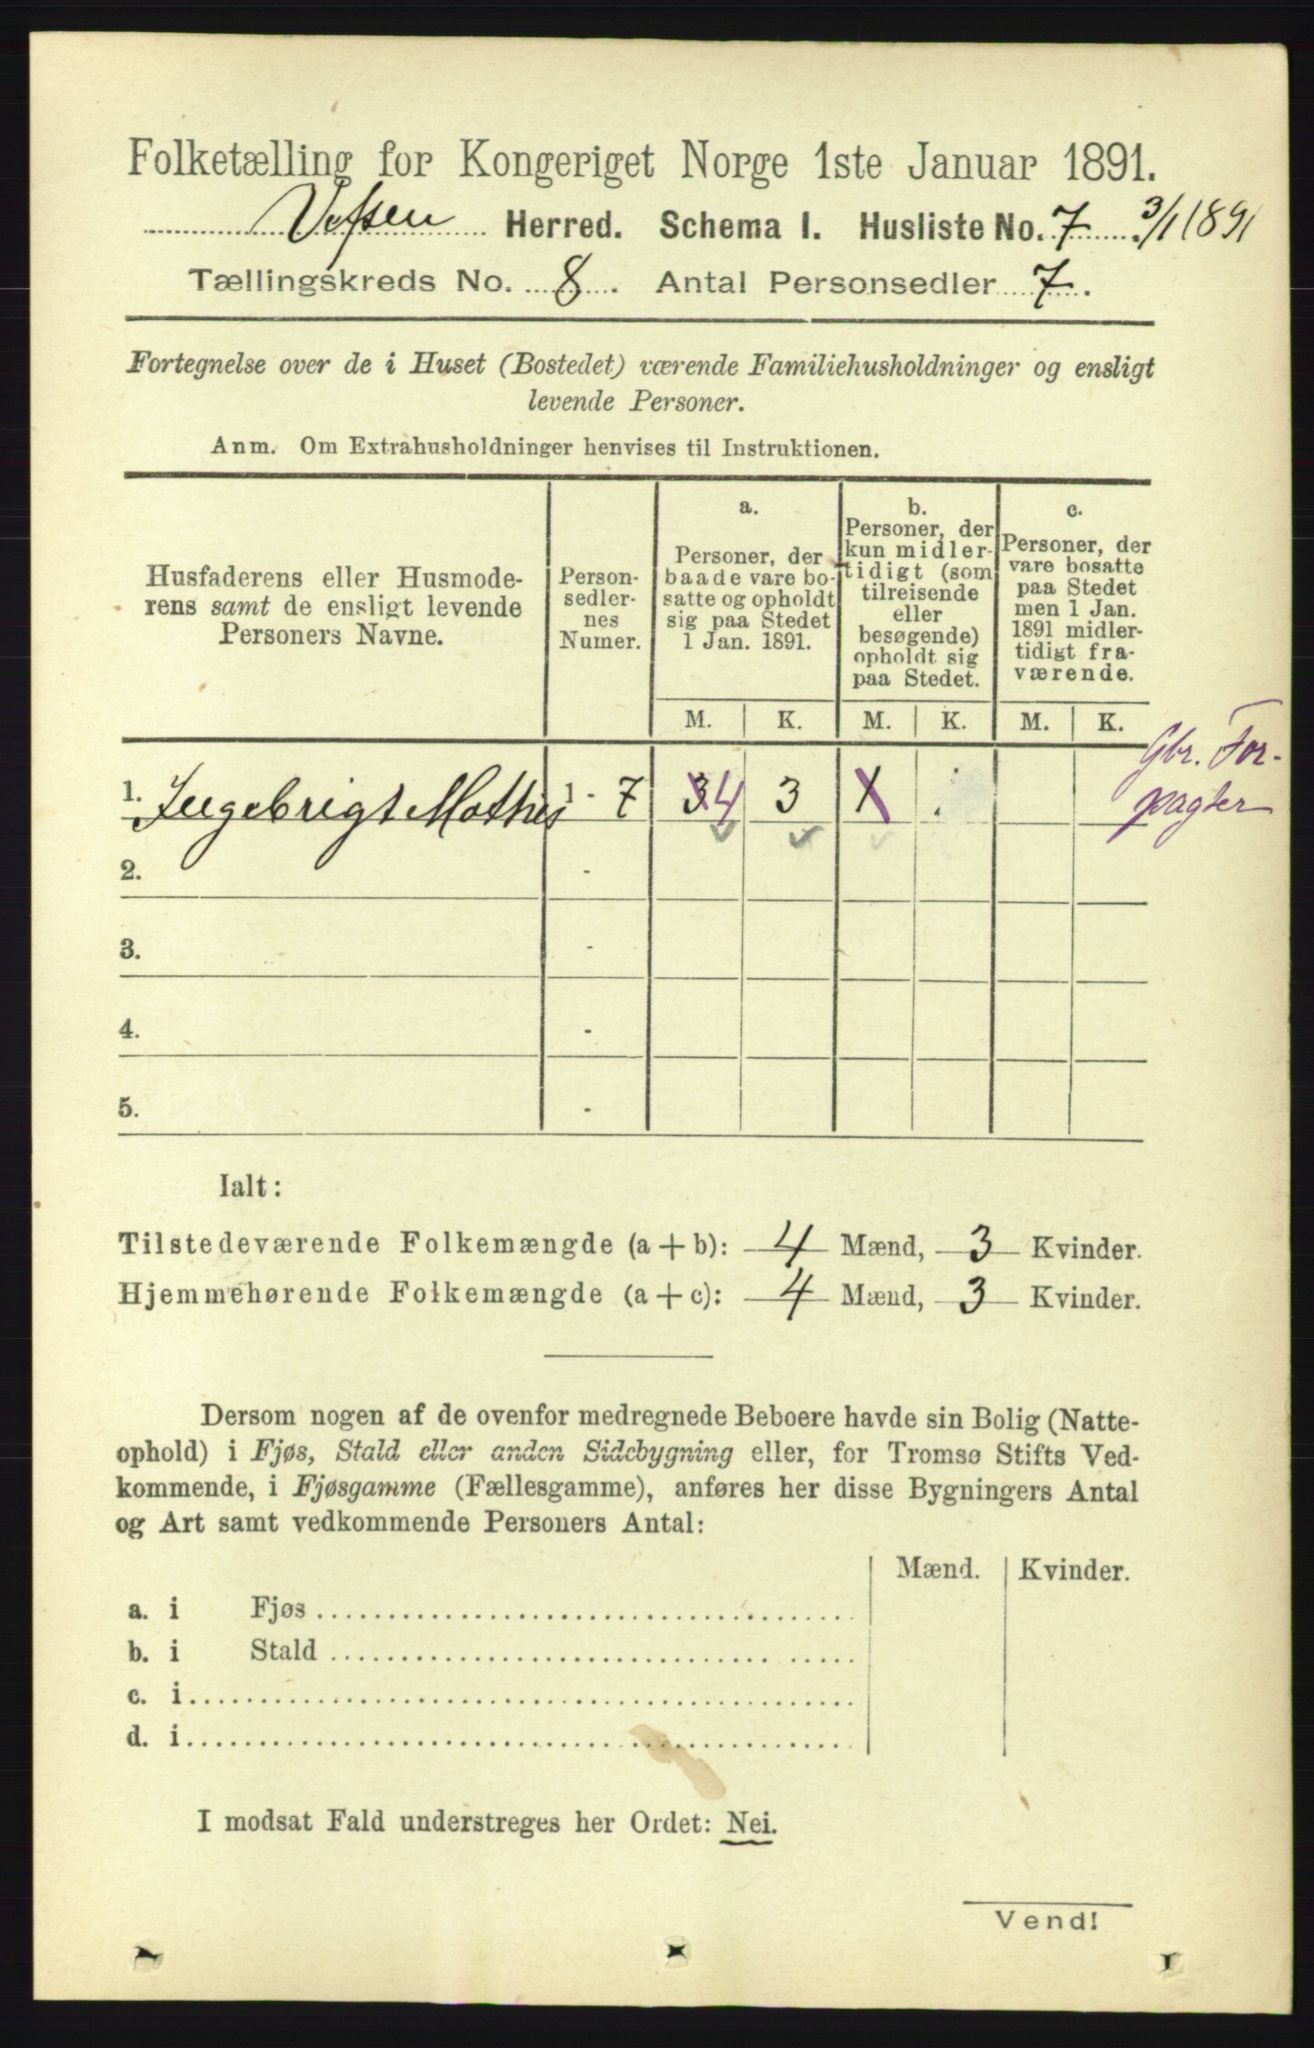 Folketælling for Kongeriget Norge 1ste Januar 1891.
Vefsen Herred. Schema I. Husliste No. 7 3/1 1891
Tællingskreds No. 8. Antal Personsedler 7.
Fortegnelse over de i Huset (Bostedet) værende Familiehusholdninger og ensligt
levende Personer.
Anm. Om Extrahusholdninger henvises til Instruktionen.
Husfaderens eller Husmode-
rens samt de ensligt levende
Personers Navne.
Person-
sedler-
nes
Numer.
a.
Personer, der
baade vare bo-
satte og opholdt
sig paa Stedet
1 Jan. 1891.
b.
Personer, der
kun midler-
tidigt (som
tilreisende
eller
besøgende)
opholdt sig
paa Stedet.
c.
Personer, der
vare bosatte
paa Stedet
men 1 Jan.
1891 midler-
tidigt fra-
værende.
M. K. M. K. M. K.
Gbr. For-
pagter
1. Ingebrigt Mathis 1 - 7 3 4 3 1
2. -
3. -
4. -
5. -
Ialt:
Tilstedeværende Folkemængde (a + b): 4 Mænd, 3 Kvinder.
Hjemmehørende Folkemængde (a + c): 4 Mænd, 3 Kvinder.
Dersom nogen af de ovenfor medregnede Beboere havde sin Bolig (Natte-
ophold) i Fjøs, Stald eller anden Sidebygning eller, for Tromsø Stifts Ved-
kommende, i Fjøsgamme (Fællesgamme), anføres her disse Bygningers Antal
og Art samt vedkommende Personers Antal:
Mænd. Kvinder.
a. i Fjøs
b. i Stald
c. i
d. i
I modsat Fald understreges her Ordet: Nei.
Vend!